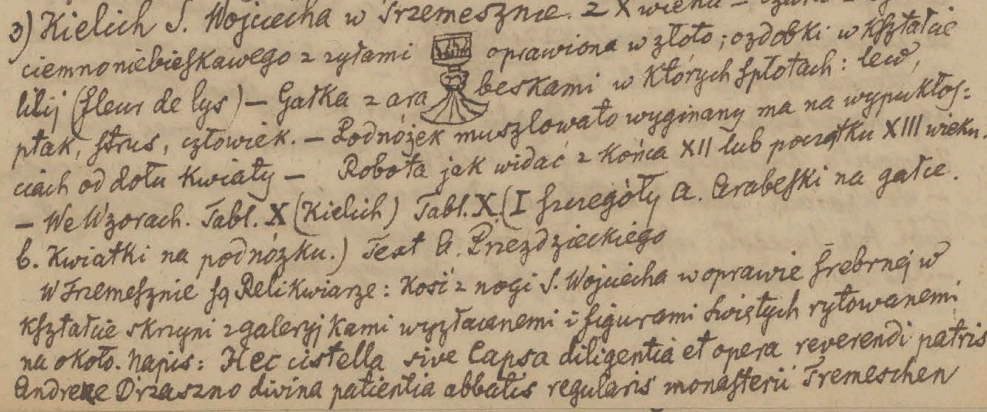 3) Kielich S. Wojciecha w Trzemesznie. z X wieku –
ciemnoniebieskawego z żyłami oprawiona w złoto; ozdobki w kształcie
lilij (fleur de lys) – Gałka z arabeskami w których splotach: lew,
ptak, strus, człowiek. – Podnóżek muszlowato wyginany ma na wypukłoś=
ciach od dołu kwiaty – Robota jak widać z końca XII lub początku XIII wieku.
– We Wzorach. Tabl. X (Kielich) Tabl. X (I szczegóły a. Arabeski na gałce.
b. Kwiatki na podnóżku.) Text A. Przezdzieckiego
W Trzemesznie są Relikwiarze: Kość z nogi S. Wojciecha w oprawie srebrnej w
kształcie skrzyni z galeryjkami wyzłacanemi i figurami świętych rytowanemi
na około. Napis: Hec cistella sive Capsa diligentia et opera reverendi patris
Andreae Drzaszno divina patientia abbatis regularis monasterii Tremeschen